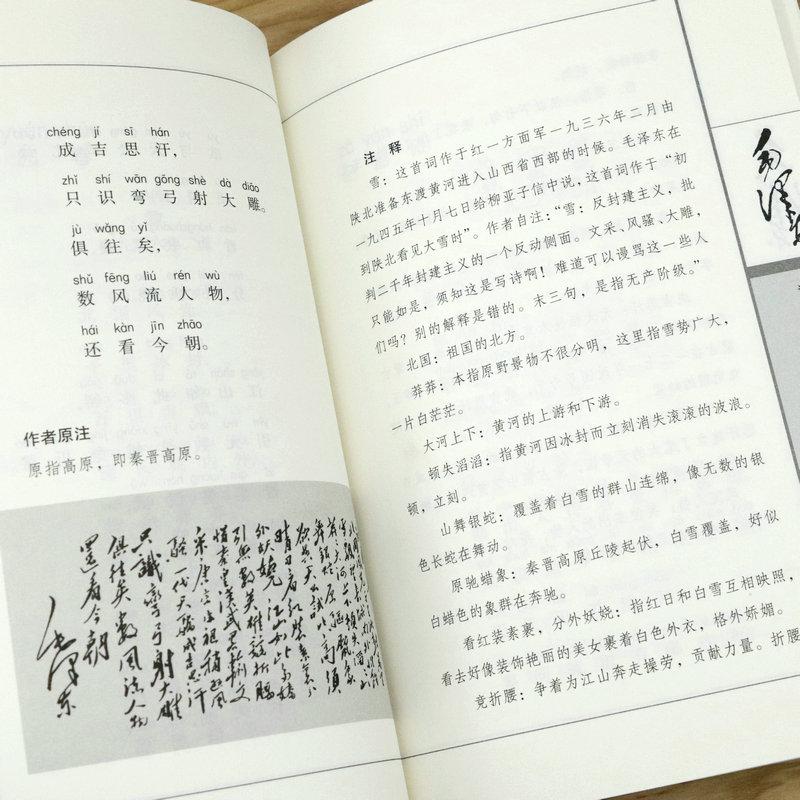 chéng jí sī hán
成吉思汗，
zhǐ shí wān gōng shè dà diāo
只识弯弓射大雕。
jù wǎng yǐ
俱往矣，
shǔ fēng liú rén wù
数风流人物，
hái kàn jīn zhāo
还看今朝。
作者原注
原指高原，即秦晋高原。
引无数英雄竞折腰
只识弯弓射大雕
俱往矣数风流人物
还看今朝
毛泽东
注释
雪：这首词作于红一方面军一九三六年二月由
陕北准备东渡黄河进入山西省西部的时候。毛泽东在
一九四五年十月七日给柳亚子信中说，这首词作于“初
到陕北看见大雪时”。作者自注：“雪：反封建主义，批
判二千年封建主义的一个反动侧面。文采、风骚、大雕，
只能如是，须知这是写诗啊！难道可以谩骂这一些人
们吗？别的解释是错的。末三句，是指无产阶级。”
北国：祖国的北方。
莽莽：本指原野景物不很分明，这里指雪势广大，
一片白茫茫。
大河上下：黄河的上游和下游。
顿失滔滔：指黄河因冰封而立刻消失滚滚的波浪。
顿，立刻。
山舞银蛇：覆盖着白雪的群山连绵，像无数的银
色长蛇在舞动。
原驰蜡象：秦晋高原丘陵起伏，白雪覆盖，好似
白蜡色的象群在奔驰。
看红装素裹，分外妖娆：指红日和白雪互相映照，
看去好像装饰艳丽的美女裹着白色外衣，格外娇媚。
竞折腰：争着为江山奔走操劳，贡献力量。折腰
毛泽东